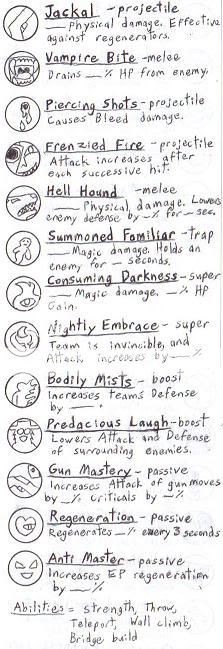 Jackal - projectile
___ Physical damage. Effective
against regenerators.
Vampire Bite - melee
Drains ___% HP from enemy.
Piercing Shots - projectile
Causes Bleed damage.
Frenzied Fire - projectile
Attack increases after
each successive hit.
Hell Hound - melee
___ Physical damage. Lowers
enemy defense by _% for _ sec.
Summoned Familiar - trap
___ Magic damage. Holds an
enemy for _ seconds.
Consuming Darkness - super
___ Magic damage. __% HP
Gain.
Nightly Embrace - super
Team is invincible, and
Attack increases by __%
Bodily Mists - boost
Increases teams Defense
by ___.
Predacious Laugh - boost
Lowers Attack and Defense
of surrounding enemies.
Gun Mastery - passive
Increases Attack of gun moves
by __% Criticals by _%
Regeneration - passive
Regenerates __% every 3 seconds
Anti Master - passive
Increases EP regeneration
by ___%
Abilities = strength, Throw,
Teleport, Wall climb,
Bridge build